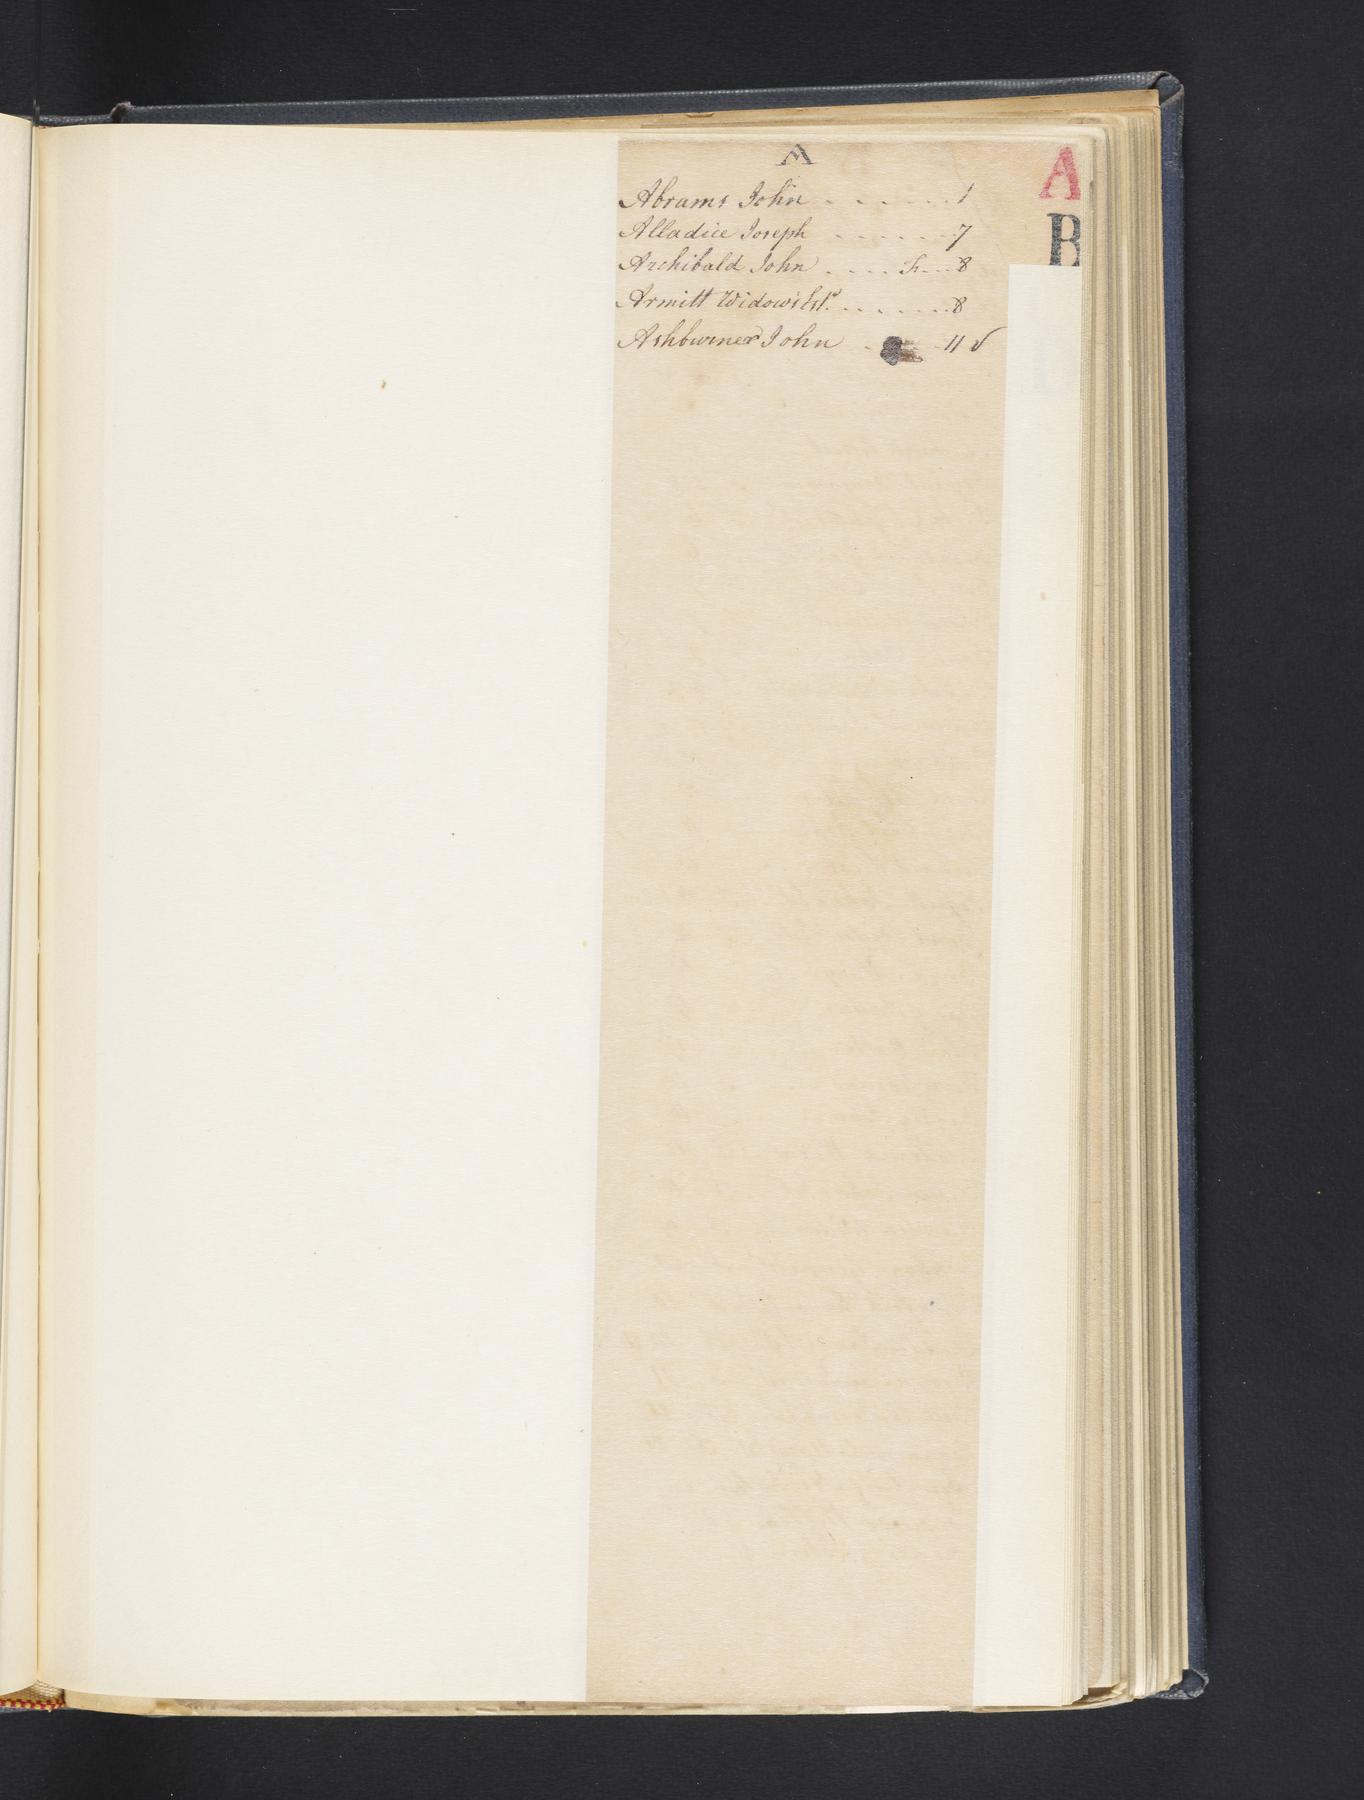 A
A
B
Abrams John . . . . . . . 1
Alladice Joseph . . . . . . . 7
Archibald John . . . . F. . . . 8
Armitt Widow's Est. . . . . . . . 8
Ashburner John . - 11